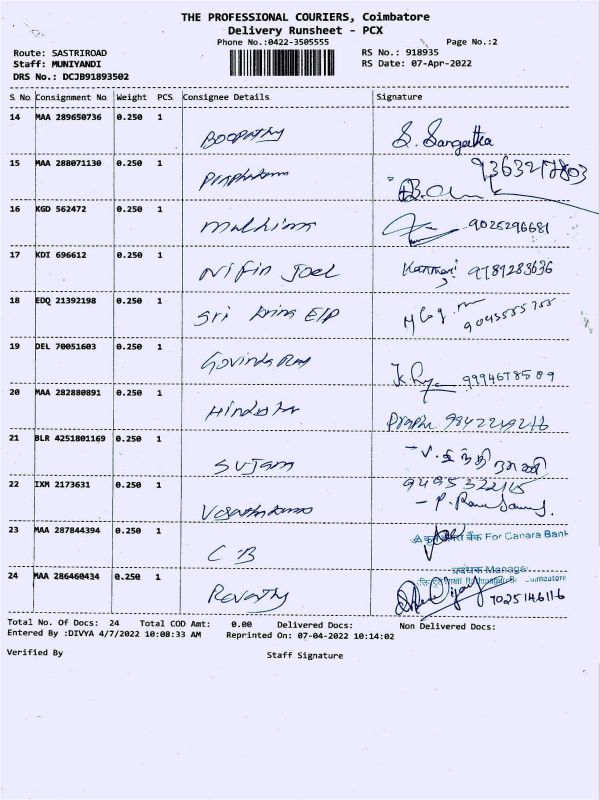 THE PROFESSIONAL COURIERS, Coimbatore
Delivery Runsheet - PCX
Phone No.:0422-3505555 Page No.:2
Route: SASTRIROAD RS No.: 918935
Staff: MUNIYANDI RS Date: 07-Apr-2022
DRS No.: DCJB91893502
S No Consignment No Weight PCS Consignee Details Signature
14 MAA 289650736 0.250 1 Boopathy S. Sangatha
15 MAA 288071130 0.250 1 9363217803
16 KGD 562472 0.250 1 9025296681
17 KDI 696612 0.250 1 Nifin Joel 9789283636
18 EDQ 21392198 0.250 1 Sri E/P
19 DEL 70051603 0.250 1 Govinda Raj 9994678509
20 MAA 282880891 0.250 1 Prapha
21 BLR 4251801169 0.250 1 Sujam
22 IXM 2173631 0.250 1
23 MAA 287844394 0.250 1 C B For Canara Bank
प्रबंधक Manager
24 MAA 286460434 0.250 1 Revathy 7025146116
Total No. Of Docs: 24 Total COD Amt: 0.00 Delivered Docs: Non Delivered Docs:
Entered By :DIVYA 4/7/2022 10:08:33 AM Reprinted On: 07-04-2022 10:14:02
Verified By Staff Signature